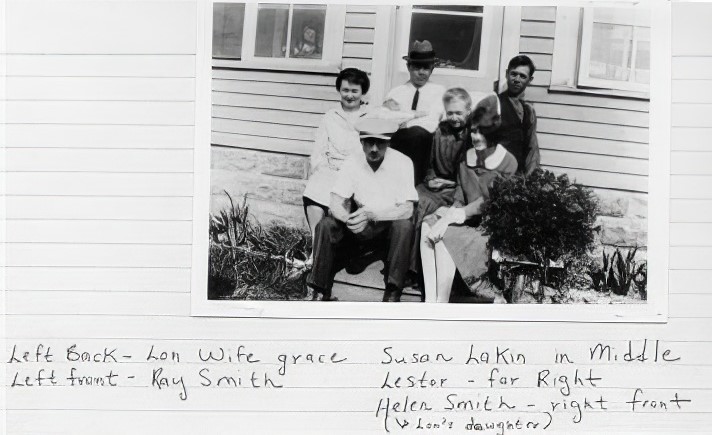 Left Back - Lon Wife grace
Left front - Ray Smith
Susan Lakin in Middle
Lester - far Right
Helen Smith - right front
(↳ Lon's dawghter)